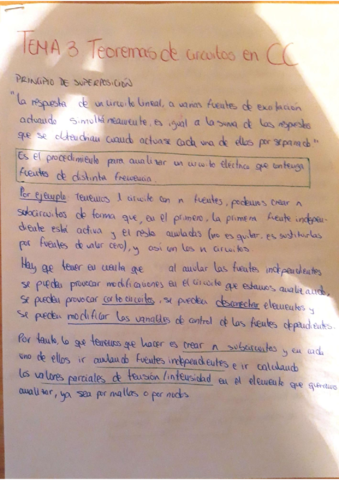 TEMA 3 Teoremas de circuitos en CC
PRINCIPIO DE SUPERPOSICIÓN
"La respuesta de un circuito lineal, a varias fuentes de excitación
actuando simultáneamente, es igual a la suma de las respuestas
que se obtendrían cuando actuase cada una de ellas por separado"
Es el procedimiento para analizar un circuito eléctrico que contenga
fuentes de distinta frecuencia.
Por ejemplo tenemos 1 circuito con n fuentes, podemos crear n
subcircuitos de forma que, en el primero, la primera fuente indepen-
diente está activa y el resto anuladas (no es quitar, es sustituirlas
por fuentes de valor cero), y así con los n circuitos
Hay que tener en cuenta que al anular las fuentes independientes
se pueden provocar modificaciones en el circuito que estamos analizando,
se pueden provocar cortocircuitos, se pueden desconectar elementos y
se pueden modificar las variables de control de las fuentes dependientes.
Por tanto, lo que tenemos que hacer es crear n subcircuitos y en cada
uno de ellos ir anulando fuentes independientes e ir calculando
los valores parciales de tensión/intensidad en el elemento que queramos
analizar, ya sea por mallas o por nudos